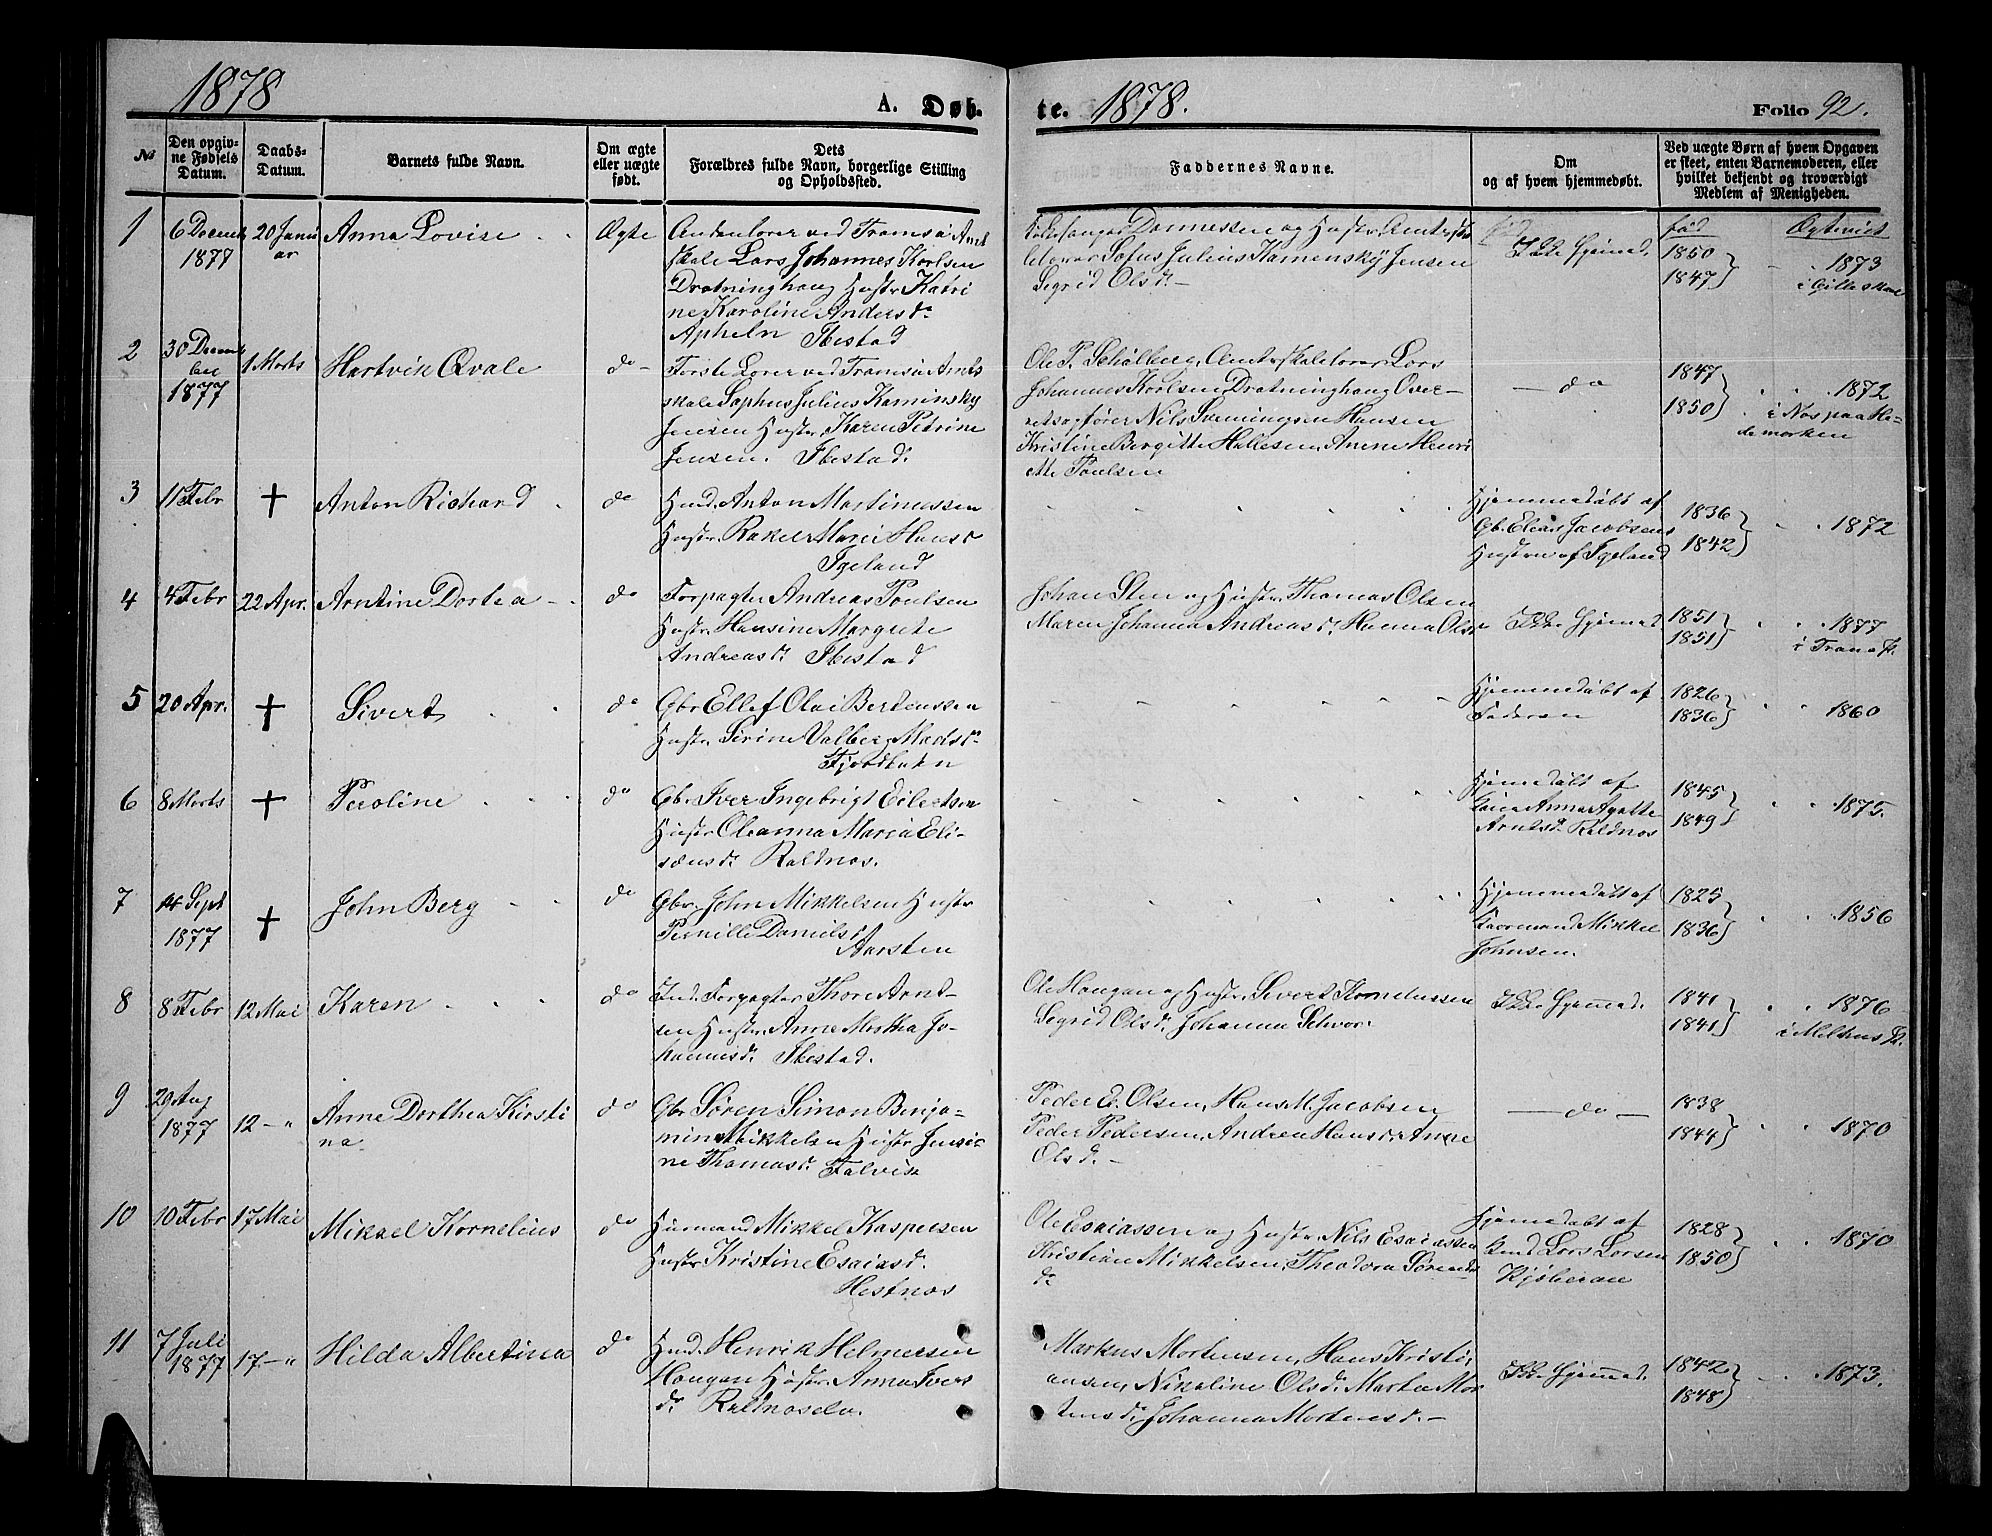 1878
A. Døb-
te. 1878.
Folio 92.
№
Den opgiv-
ne Fødsels
Datum.
Daabs-
Datum.
Barnets fulde Navn.
Om ægte
eller uægte
født.
Dets
Forældres fulde Navn, borgerlige Stilling
og Opholdssted.
Faddernes Navne.
Om
og af hvem hjemmedøbt.
Ved uægte Børn af hvem Opgaven
er skeet, enten Barnemoderen, eller
hvilket bekjendt og troværdigt
Medlem af Menigheden.
1
6 Decemb
1877
20 Janu
ar
Anna Lovise
Ægte
Andenlærer ved Tromsø Amt
skole Lars Johannes Karlsen
Drotninghaug Hustr. Katri
ne Karoline Anders d.
Apheln Ibestad
Dannessen og Hustr. Amtssko
lelærer Sofus Julius Kamensky Jensen
Segrid Olsd. –
Ikke Hjemmed.
fød
1850
1847
Egteviet
1873
i Gilleskaal
2
30 Decem
ber
1877
1 Marts
Hartvik Qvale
do
Første Lærer ved Tromsø Amts
skole Sophus Julius Kaminsky
Jensen Hustr. Karen Petrine
Jensen. Ibestad.
Ole P. Schølberg, Amtsskolelærer Lars
Johannes Karlsen Drotninghaug Over-
retssagfører Nils Svenningsen Hansen
Kristine Bergitte Hallesen, Anene Henri
ette Poulsen
– do
1847
1850
1872
i Næs paa He-
demarken
3
11 Febr
†
Anton Richard
do
Husmd. Anton Martinussen
Hustr. Rakel Marie Hans d.
Igeland
Hjemmedøbt af
Gbr. Elias Jacobsens
Hustru af Igeland
1836
1842
1872
4
4 Febr
22 Apr.
Arntine Dortea
do
Forpagter Andreas Poulsen
Hustr. Hansine Margrete
Andreas d. Ibestad
Johan Sten og Hustr. Thomas Olsen
Maren Johanna Andreas d. Hanna Olsd
Ikke Hjemmed.
1851
1851
1877
i Tranø P.
5
20 Apr.
†
Sivert
do
Gbr. Ellef Olai Berteussen
Hustr. Sirine Valberg Mads d.
Fjordbotn
Hjemmedøbt af
Faderen
1826
1836
1860
6
8 Marts
†
Peroline
do
Gbr. Iver Ingebrigt Eilertsen
Hustr. Oleanna Maria Eli-
sæus d. Roldnæs.
Hjemmedøbt af
Anna Agatte
Arnts d. Roldnæs
1845
1849
1875.
7
14 Sept
1877
†
John Berg
do
Gbr. John Mikkelsen Hustr.
Pernille Daniels d.
Aarsten
Hjemmedøbt af
Mikkel
Johnsen.
1825
1836
1856
8
8 Febr
12 Mai
Karen
do
Ind. Forpagter Thore Arnt-
sen Hustr. Anne Martha Jo-
hannes d. Ibestad.
Ole Haugan og Hustr. Sivert Korneliussen
Segrid Ols d. Johanna Schvor.
Ikke Hjemmed.
1841
1841
1876
i Melhus P.
9
29 Aug
1877
12 – "
Anne Dorthea Kirsti
na
do
Gbr. Søren Simon Benja-
min Mikkelsen Hustr. Jensi-
ne Thomas d. Falvik
Peder E. Olsen, Hans M. Jacobsen
Peder Pedersen, Andrea Hans d. Anne
Ols d. –
– do –
1838
1844
1870
10
10 Febr
17 Mai
Mikael Kornelius
do
Husmand Mikkel Kaspersen
Hustr. Kristine Esaias d.
Hestnæs
Ole Esaiassen og Hustr. Nils Esaiassen
Kristian Mikkelsen, Theodora Sørens
d.
Hjemmedøbt af
Lars Larsen
1828
1850
1870
11
7 Juli
1877
17 – "
Hilda Albertina
do
Husmd. Henrik Helmersen
Haugan Hustr. Anna Ivers
d. Roldnæselv.
Markus Mortensen, Hans Kristi-
ansen, Nikoline Ols d. Marta Mor
tens d. Johanna Mortens d. –
Ikke Hjemmed.
1842
1848
1873.